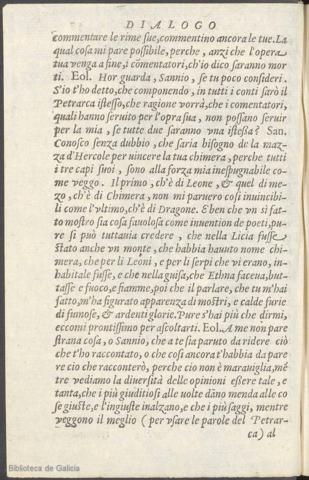 DIALOGO
commentare le rime sue, commentino ancora le tue. La
qual cosa mi pare possibile, perche, anzi che l'opera
tua venga a fine, i cōmentatori, ch'io dico saranno mor
ti. Eol. Hor guarda, Sannio, se tu poco consideri.
S'io t'ho detto, che componendo, in tutti i conti sarò il
Petrarca istesso, che ragione vorrà, che i comentatori,
quali hanno seruito per l'opra sua, non possano seruir
per la mia, se tutte due saranno vna istessa? San.
Conosco senza dubbio, che saria bisogno de la maz-
za d'Hercole per uincere la tua chimera, perche tutti
i tre capi suoi, sono alla forza mia inespugnabile co-
me veggo. Il primo, ch'è di Leone, & quel di me-
zo, ch'è di Chimera, non mi paruero cosi inuincibi-
li come l'vltimo, ch'è di Dragone. E ben che vn sì fat-
to mostro sia cosa fauolosa come inuention de poeti, pu-
re si può tuttauia credere, che nella Licia fusse
stato anche vn monte, che habbia hauuto nome chi-
mera, che per li Leoni, e per li serpi che vi erano, in-
habitale fusse, e che nella guisa, che Ethna faceua, but-
tasse e fuoco, e fiamme, poi che il parlare, che tu m'hai
fatto, m'ha figurato apparenza di mostri, e calde furie
di fumose, & ardenti glorie. Pure s'hai più che dirmi,
eccomi prontissimo per ascoltarti. Eol. A me non pare
strana cosa, o Sannio, che a te sia paruto da ridere ciò
che t'ho raccontato, o che cosi ancora t'habbia da pare
re ciò che racconterò, perche ciò non è marauiglia, mē
tre vediamo la diuersità delle opinioni essere tale, e
tanta, che i più giuditiosi alle uolte dāno menda alle co
se giuste, e l'ingiuste inalzano, e che i più saggi, mentre
veggono il meglio (per vsare le parole del Petrar-
ca) al
Biblioteca de Galicia